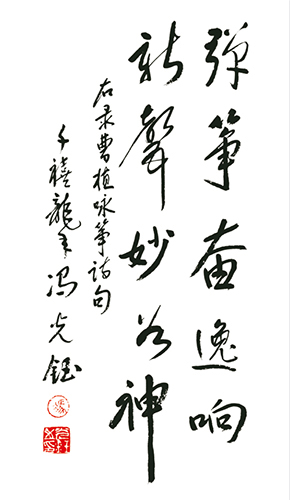 弹筝奋逸响
新聲妙入神
右录曹植咏筝诗句
千禧龍年冯光钰